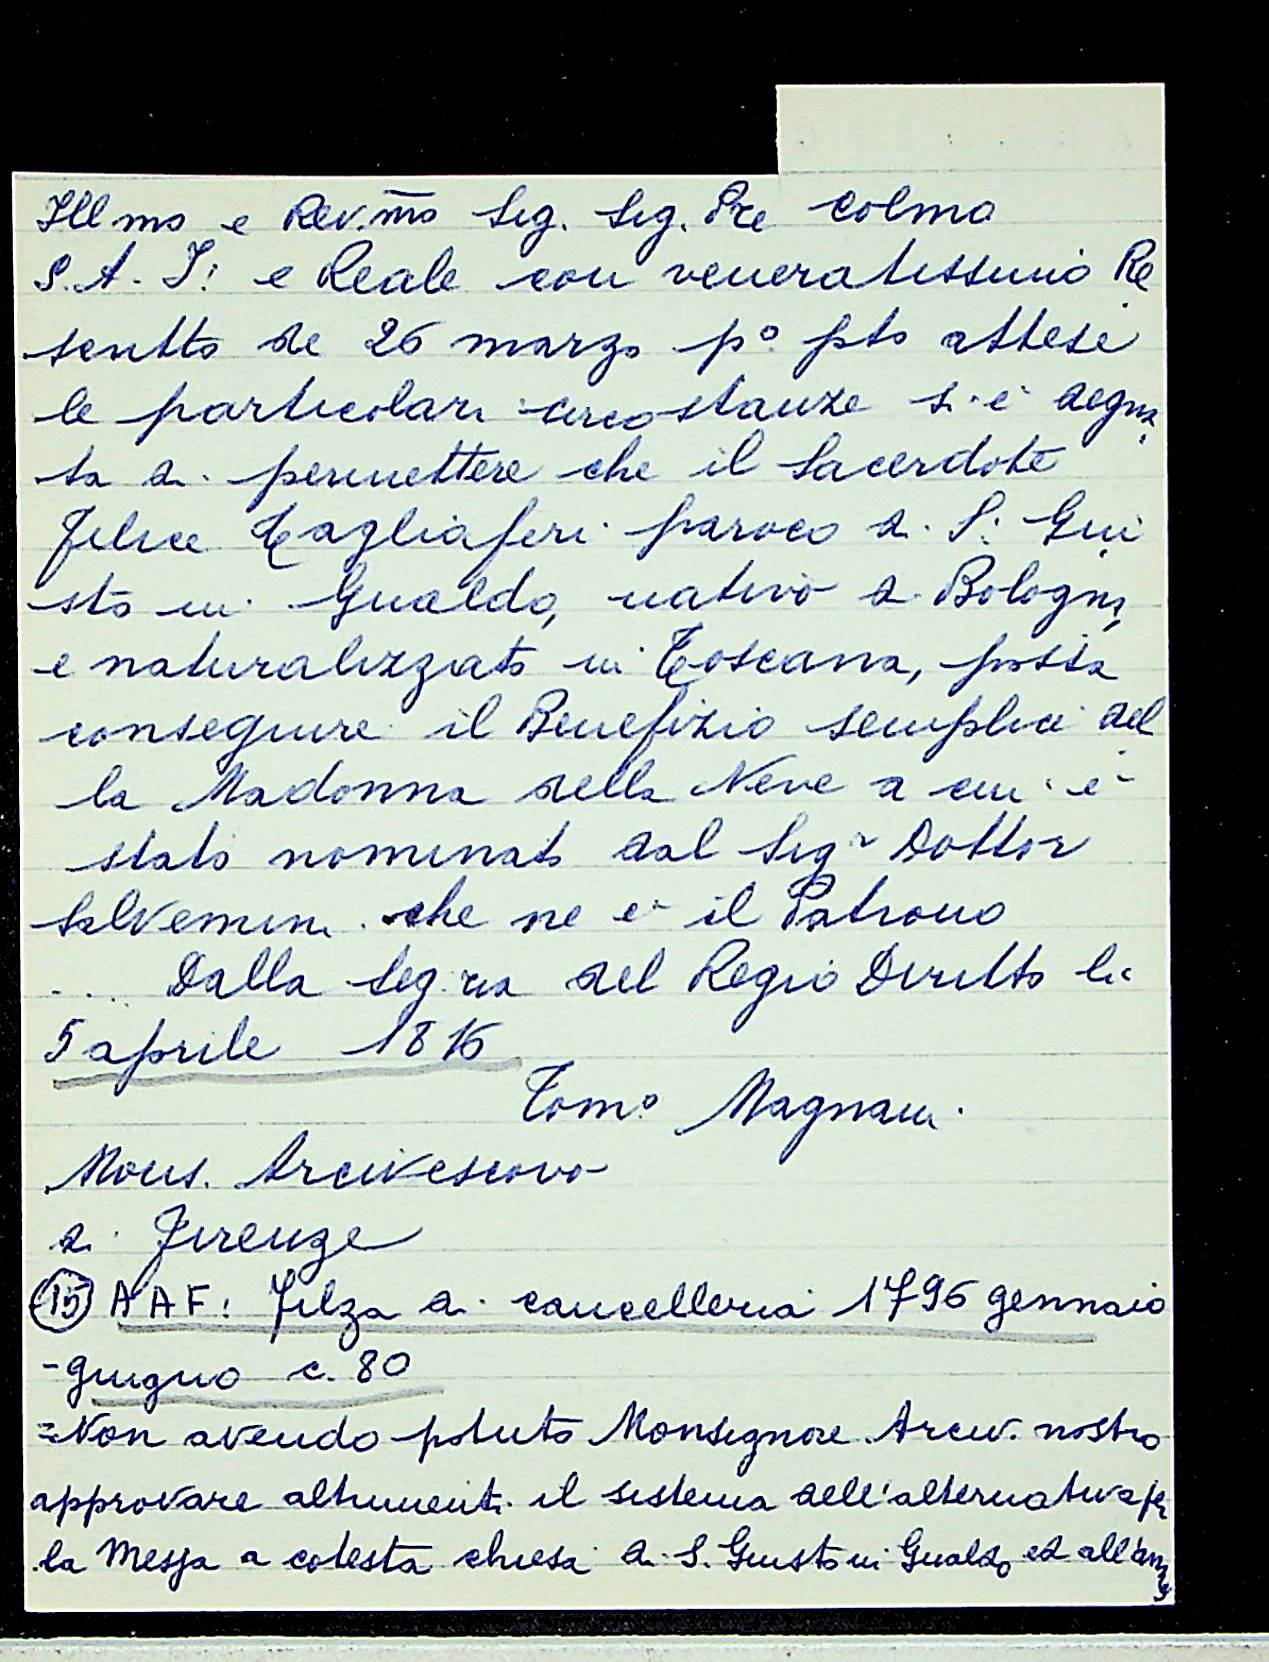 Ill mo e Rev.mo Sig. Sig. Pre Colmo
S. A. I: e Reale con veneratissimo Re
scritto de 26 marzo p° pto attese
le particolari circostanze s. è degna
ta di permettere che il Sacerdote
Felice Tagliaferi paroco di S: Giu
sto in Gualdo, nativo di Bologna,
e naturalizzato in Toscana, possa
conseguire il Benefizio semplice del
la Madonna della Neve a cui è
stato nominato dal Sigr Dottor
Salvemini che ne è il Patrono
... Dalla Seg.ria del Regio Diritto li
5 aprile 1816
Tom° Magnani
Mons. Arcivescovo
di Firenze
(15) AAF: Filza di cancelleria 1796 gennaio
-giugno c. 80
=Non avendo potuto Monsignore Arciv. nostro
approvare altrimenti il sistema dell'alternativa per
la Messa a cotesta chiesa di S. Giusto in Gualdo ed all'